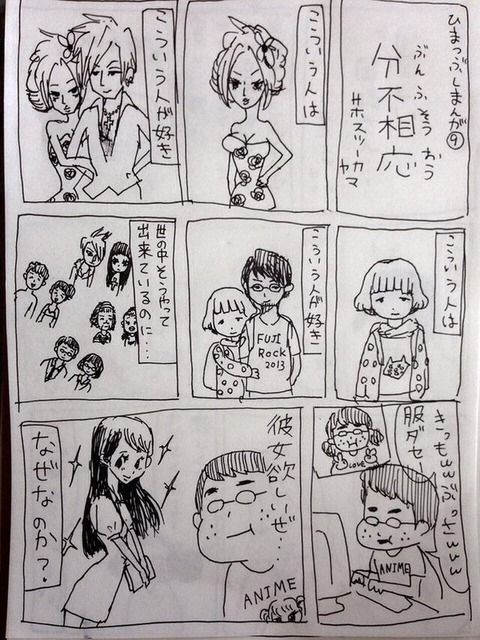 ひまつぶしまんが⑨
ぶんふそうおう
分不相応
こういう人は
こういう人が好き
こういう人は
こういう人が好き
FUJI
Rock
2013
世の中そうやって
出来ているのに…
きっもwwぶっさwww
服ダセ
LOVE
ANIME
彼女欲しいぜ…
ANIME
なぜなのか?